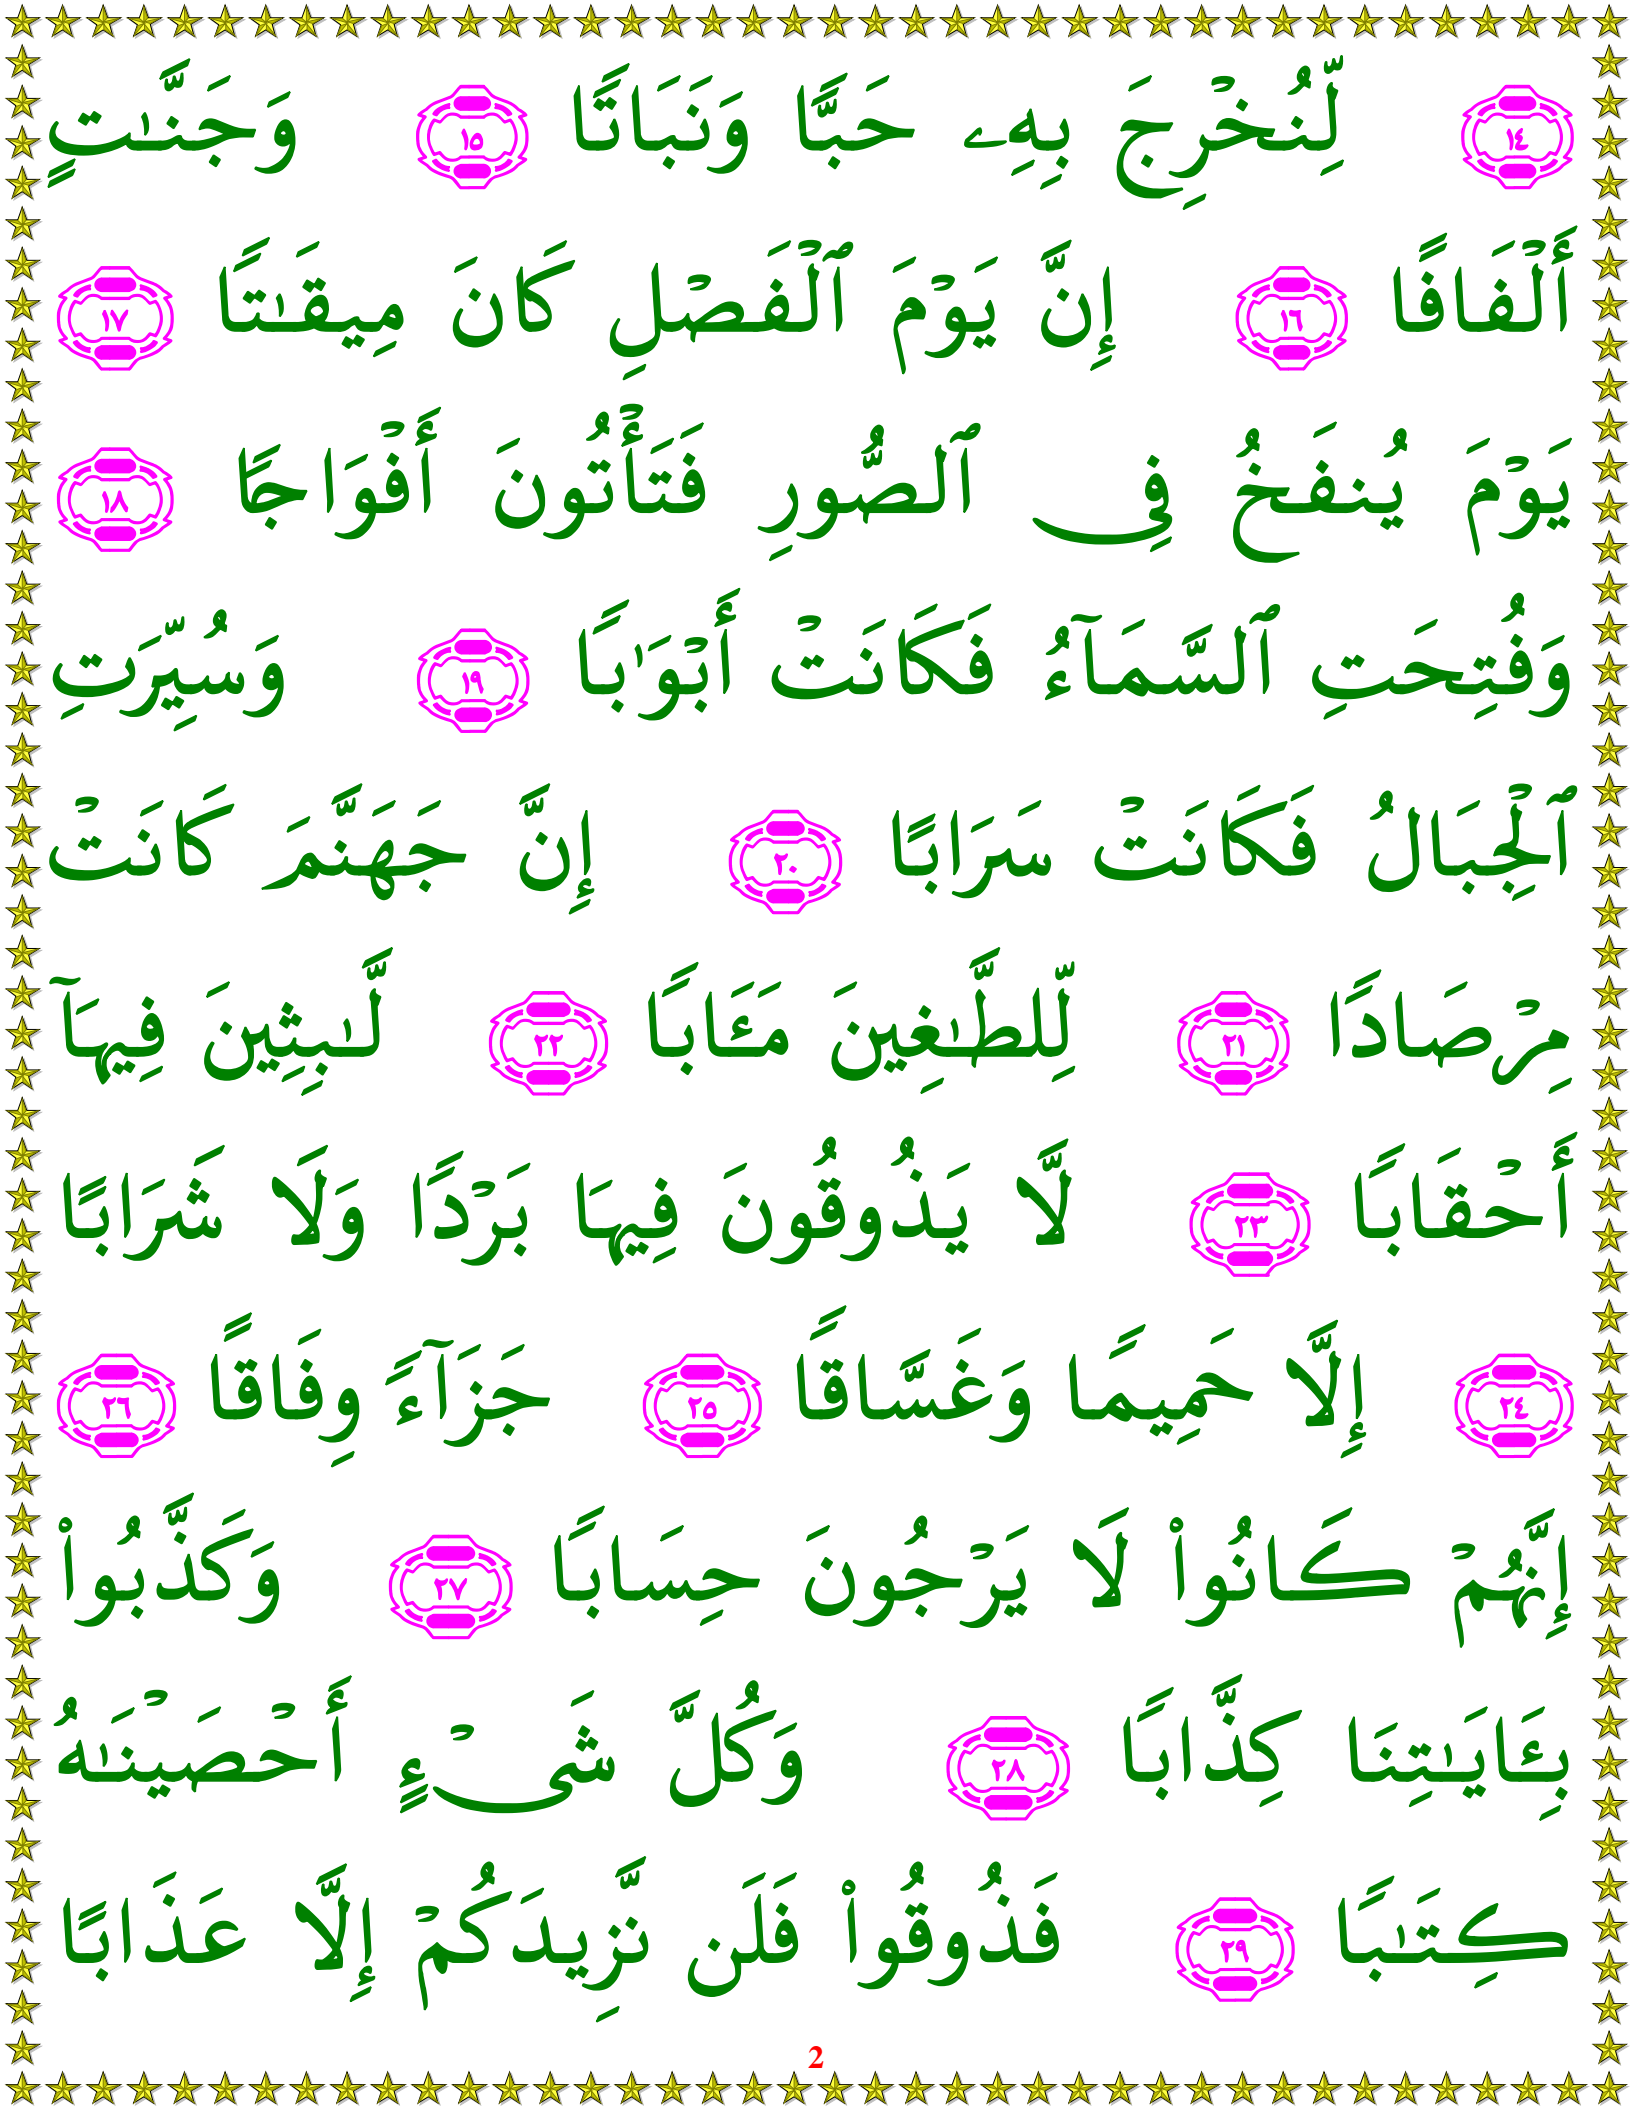 ١٤ لِّنُخْرِجَ بِهِۦ حَبًّا وَنَبَاتًا ١٥ وَجَنَّـٰتٍ
أَلْفَافًا ١٦ إِنَّ يَوْمَ ٱلْفَصْلِ كَانَ مِيقَـٰتًا ١٧
يَوْمَ يُنفَخُ فِى ٱلصُّورِ فَتَأْتُونَ أَفْوَاجًا ١٨
وَفُتِحَتِ ٱلسَّمَآءُ فَكَانَتْ أَبْوَٰبًا ١٩ وَسُيِّرَتِ
ٱلْجِبَالُ فَكَانَتْ سَرَابًا ٢٠ إِنَّ جَهَنَّمَ كَانَتْ
مِرْصَادًا ٢١ لِّلطَّـٰغِينَ مَـَٔابًا ٢٢ لَّـٰبِثِينَ فِيهَآ
أَحْقَابًا ٢٣ لَّا يَذُوقُونَ فِيهَا بَرْدًا وَلَا شَرَابًا
٢٤ إِلَّا حَمِيمًا وَغَسَّاقًا ٢٥ جَزَآءً وِفَاقًا ٢٦
إِنَّهُمْ كَانُوا۟ لَا يَرْجُونَ حِسَابًا ٢٧ وَكَذَّبُوا۟
بِـَٔايَـٰتِنَا كِذَّابًا ٢٨ وَكُلَّ شَىْءٍ أَحْصَيْنَـٰهُ
كِتَـٰبًا ٢٩ فَذُوقُوا۟ فَلَن نَّزِيدَكُمْ إِلَّا عَذَابًا
2